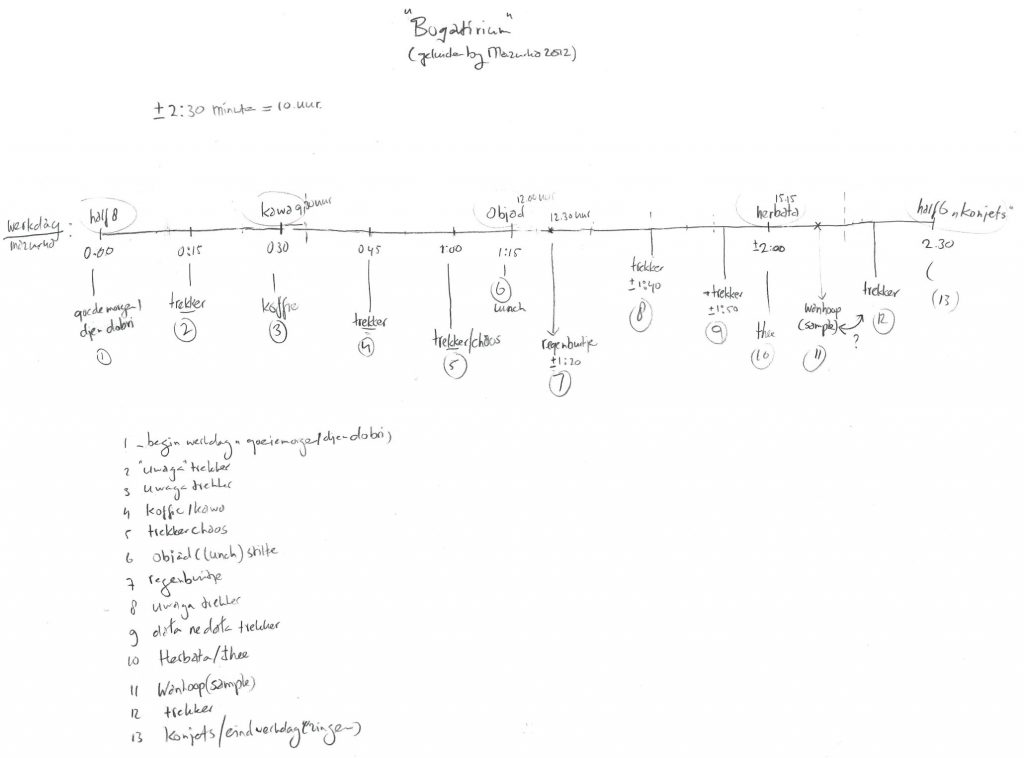 "Bogatirium"
(geluiden by Mazurka 2012)
± 2:30 minute = 10 uur.
werkdag
mazurka
:
half 8
kawa 9:30 uur
Objad
12.00 uur
12.30 uur
15:15
herbata
half 6 "konjets"
0.00
0:15
0:30
0:45
1:00
1:15
± 2:00
2.30
goedemorgen/
djen dobri
1
trekker
2
koffie
3
trekker
4
trekker/chaos
5
6
lunch
regenbuitje
± 1:20
7
trekker
± 1:40
8
trekker
± 1:50
9
thee
10
wanhoop
(sample)
?
11
trekker
12
(
(13)
1 - begin werkdag = goeiemorgen/djen-dobri)
2 "uwaga" trekker
3 uwaga trekker
4 koffie/kawa
5 trekkerchaos
6 objad (lunch) stilte
7 regenbuitje
8 uwaga trekker
9 data ne data trekker
10 Herbata/thee
11 Wanhoop (sample)
12 trekker
13 konjets/eind werkdag (zingen)